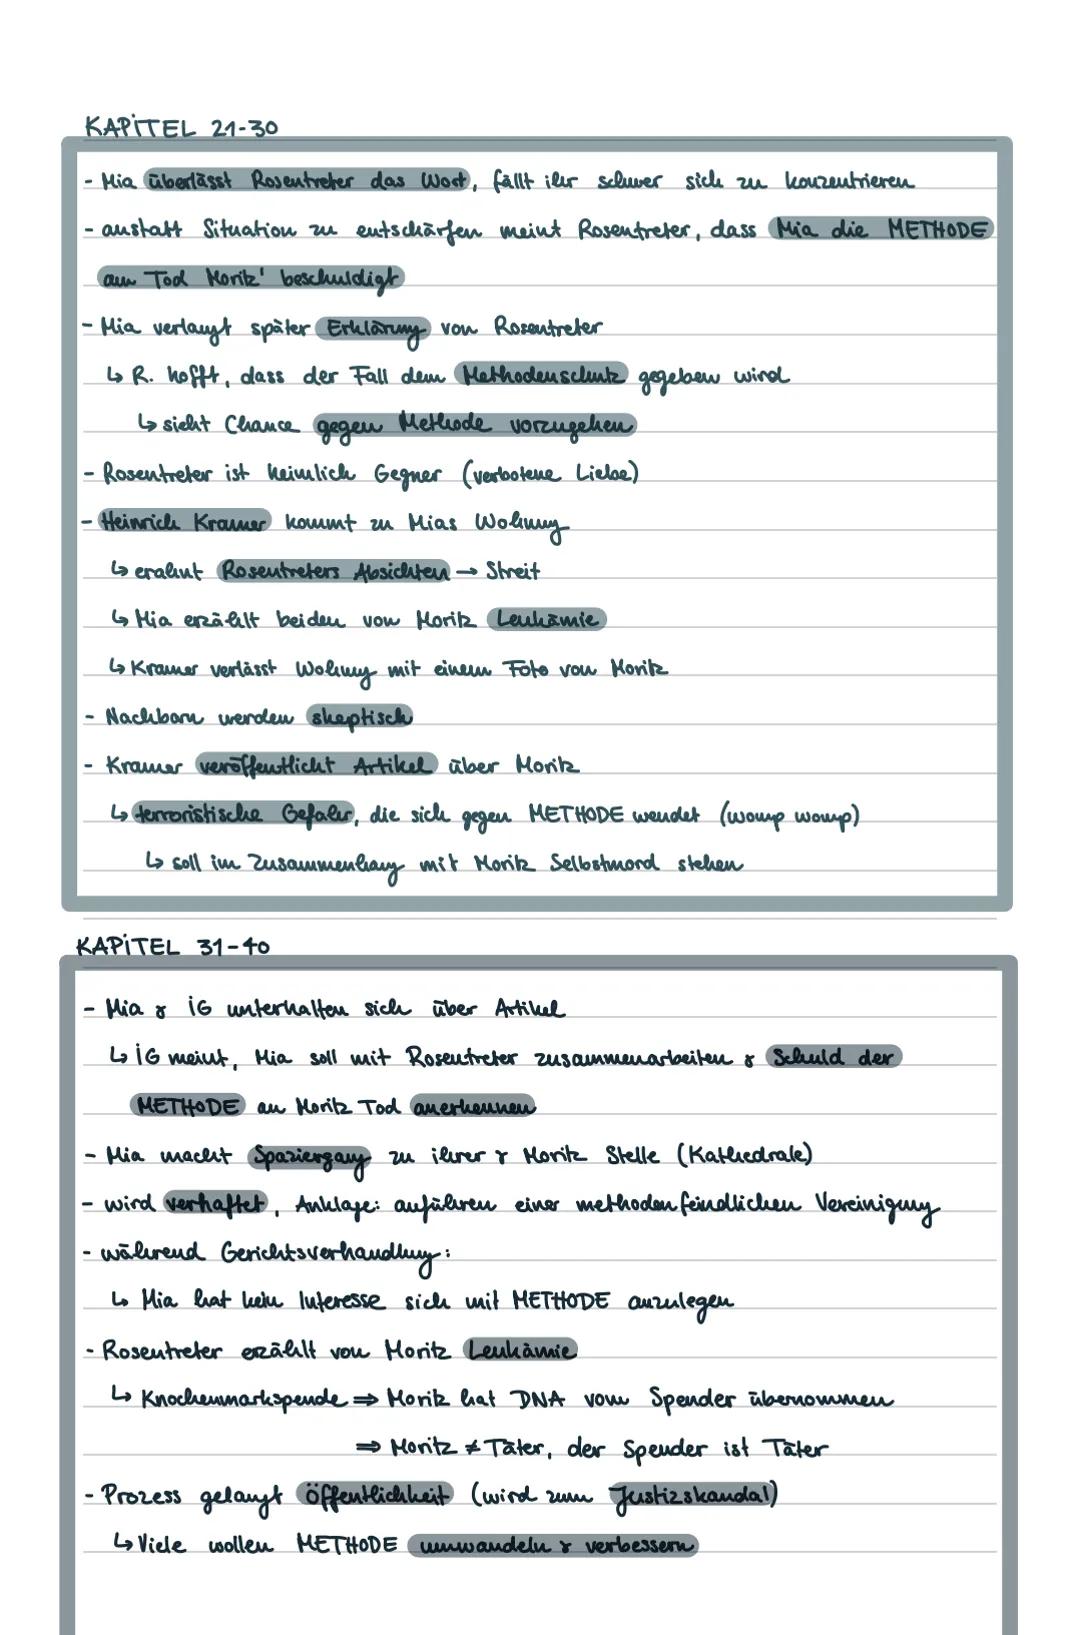 KAPİTEL 21-30
- Mia überlässt Rosentreter das Wort, fällt ihr schwer sich zu konzentrieren
- anstatt Situation zu entschärfen meint Rosentreter, dass Mia die METHODE
am Tod Moritz' beschuldigt
- Mia verlangt später Erklärung von Rosentreter
↳ R. hofft, dass der Fall dem Methodenschutz gegeben wird
↳ sieht Chance gegen Methode vorzugehen
- Rosentreter ist heimlich Gegner (verbotene Liebe)
- Heinrich Kramer kommt zu Mias Wohnung
↳ erahnt Rosentreters Absichten → Streit
↳ Mia erzählt beiden von Moritz Leukämie
↳ Kramer verlässt Wohnung mit einem Foto von Moritz
- Nachbarn werden skeptisch
- Kramer veröffentlicht Artikel über Moritz
↳ terroristische Gefahr, die sich gegen METHODE wendet (womp womp)
↳ soll im Zusammenhang mit Moritz Selbstmord stehen
KAPİTEL 31-40
- Mia & İG unterhalten sich über Artikel
↳ İG meint, Mia soll mit Rosentreter zusammenarbeiten & Schuld der
METHODE an Moritz Tod anerkennen
- Mia macht Spaziergang zu ihrer & Moritz Stelle (Kathedrale)
- wird verhaftet, Anklage: anführen einer methodenfeindlichen Vereinigung
- während Gerichtsverhandlung:
↳ Mia hat kein Interesse sich mit METHODE anzulegen
- Rosentreter erzählt von Moritz Leukämie
↳ Knochenmarkspende ⇒ Moritz hat DNA vom Spender übernommen
⇒ Moritz ≠ Täter, der Spender ist Täter
- Prozess gelangt öffentlichkeit (wird zum Justizskandal)
↳ Viele wollen METHODE umwandeln & verbessern